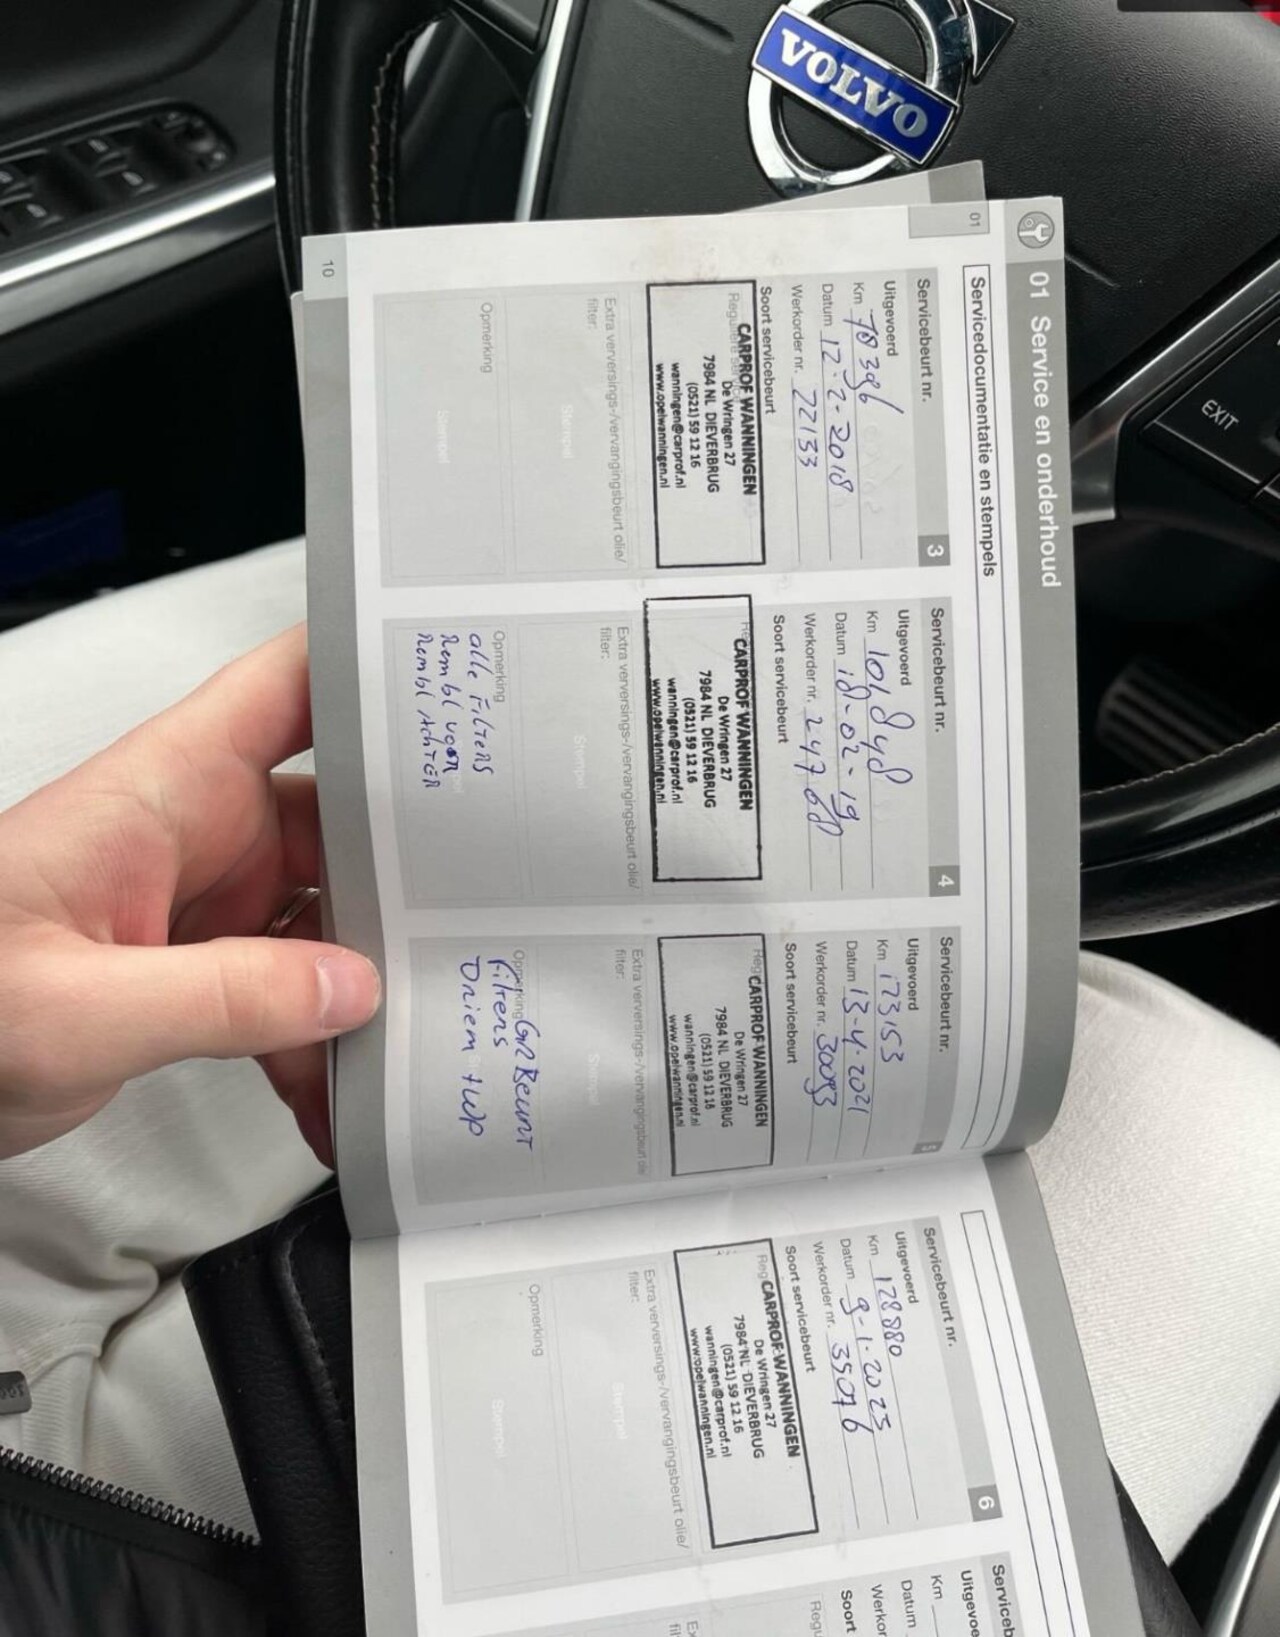 VOLVO
EXIT
01 Service en onderhoud
01
Servicedocumentatie en stempels
Servicebeurt nr. 3
Uitgevoerd
Km 78396
Datum 12-2-2018
Werkorder nr. 22133
Soort servicebeurt
Reguliere
CARPROF WANNINGEN
De Wringen 27
7984 NL DIEVERBRUG
(0521) 59 12 16
wanningen@carprof.nl
www.opelwanningen.nl
Extra verversings-/vervangingsbeurt olie/
filter:
Stempel
Opmerking
Stempel
Servicebeurt nr. 4
Uitgevoerd
Km 101848
Datum 18-02-19
Werkorder nr. 24768
Soort servicebeurt
CARPROF WANNINGEN
De Wringen 27
7984 NL DIEVERBRUG
(0521) 59 12 16
wanningen@carprof.nl
www.opelwanningen.nl
Extra verversings-/vervangingsbeurt olie/
filter:
Stempel
Opmerking
alle Filters
Rembl voor
Rembl Achter
Servicebeurt nr. 5
Uitgevoerd
Km 123153
Datum 13-4-2021
Werkorder nr. 30093
Soort servicebeurt
CARPROF WANNINGEN
De Wringen 27
7984 NL DIEVERBRUG
(0521) 59 12 16
wanningen@carprof.nl
www.opelwanningen.nl
Extra verversings-/vervangingsbeurt olie/
filter:
Stempel
Opmerking GR Beurt
Filters
Driem + WP
10
Servicebeurt nr. 6
Uitgevoerd
Km 128880
Datum 9-1-2023
Werkorder nr. 35076
Soort servicebeurt
CARPROF WANNINGEN
De Wringen 27
7984 NL DIEVERBRUG
(0521) 59 12 16
wanningen@carprof.nl
www.opelwanningen.nl
Extra verversings-/vervangingsbeurt olie/
filter:
Stempel
Opmerking
Stempel
Serviceb
Uitgevoe
Km
Datum
Werkor
Soort
Regu
Ex
filt